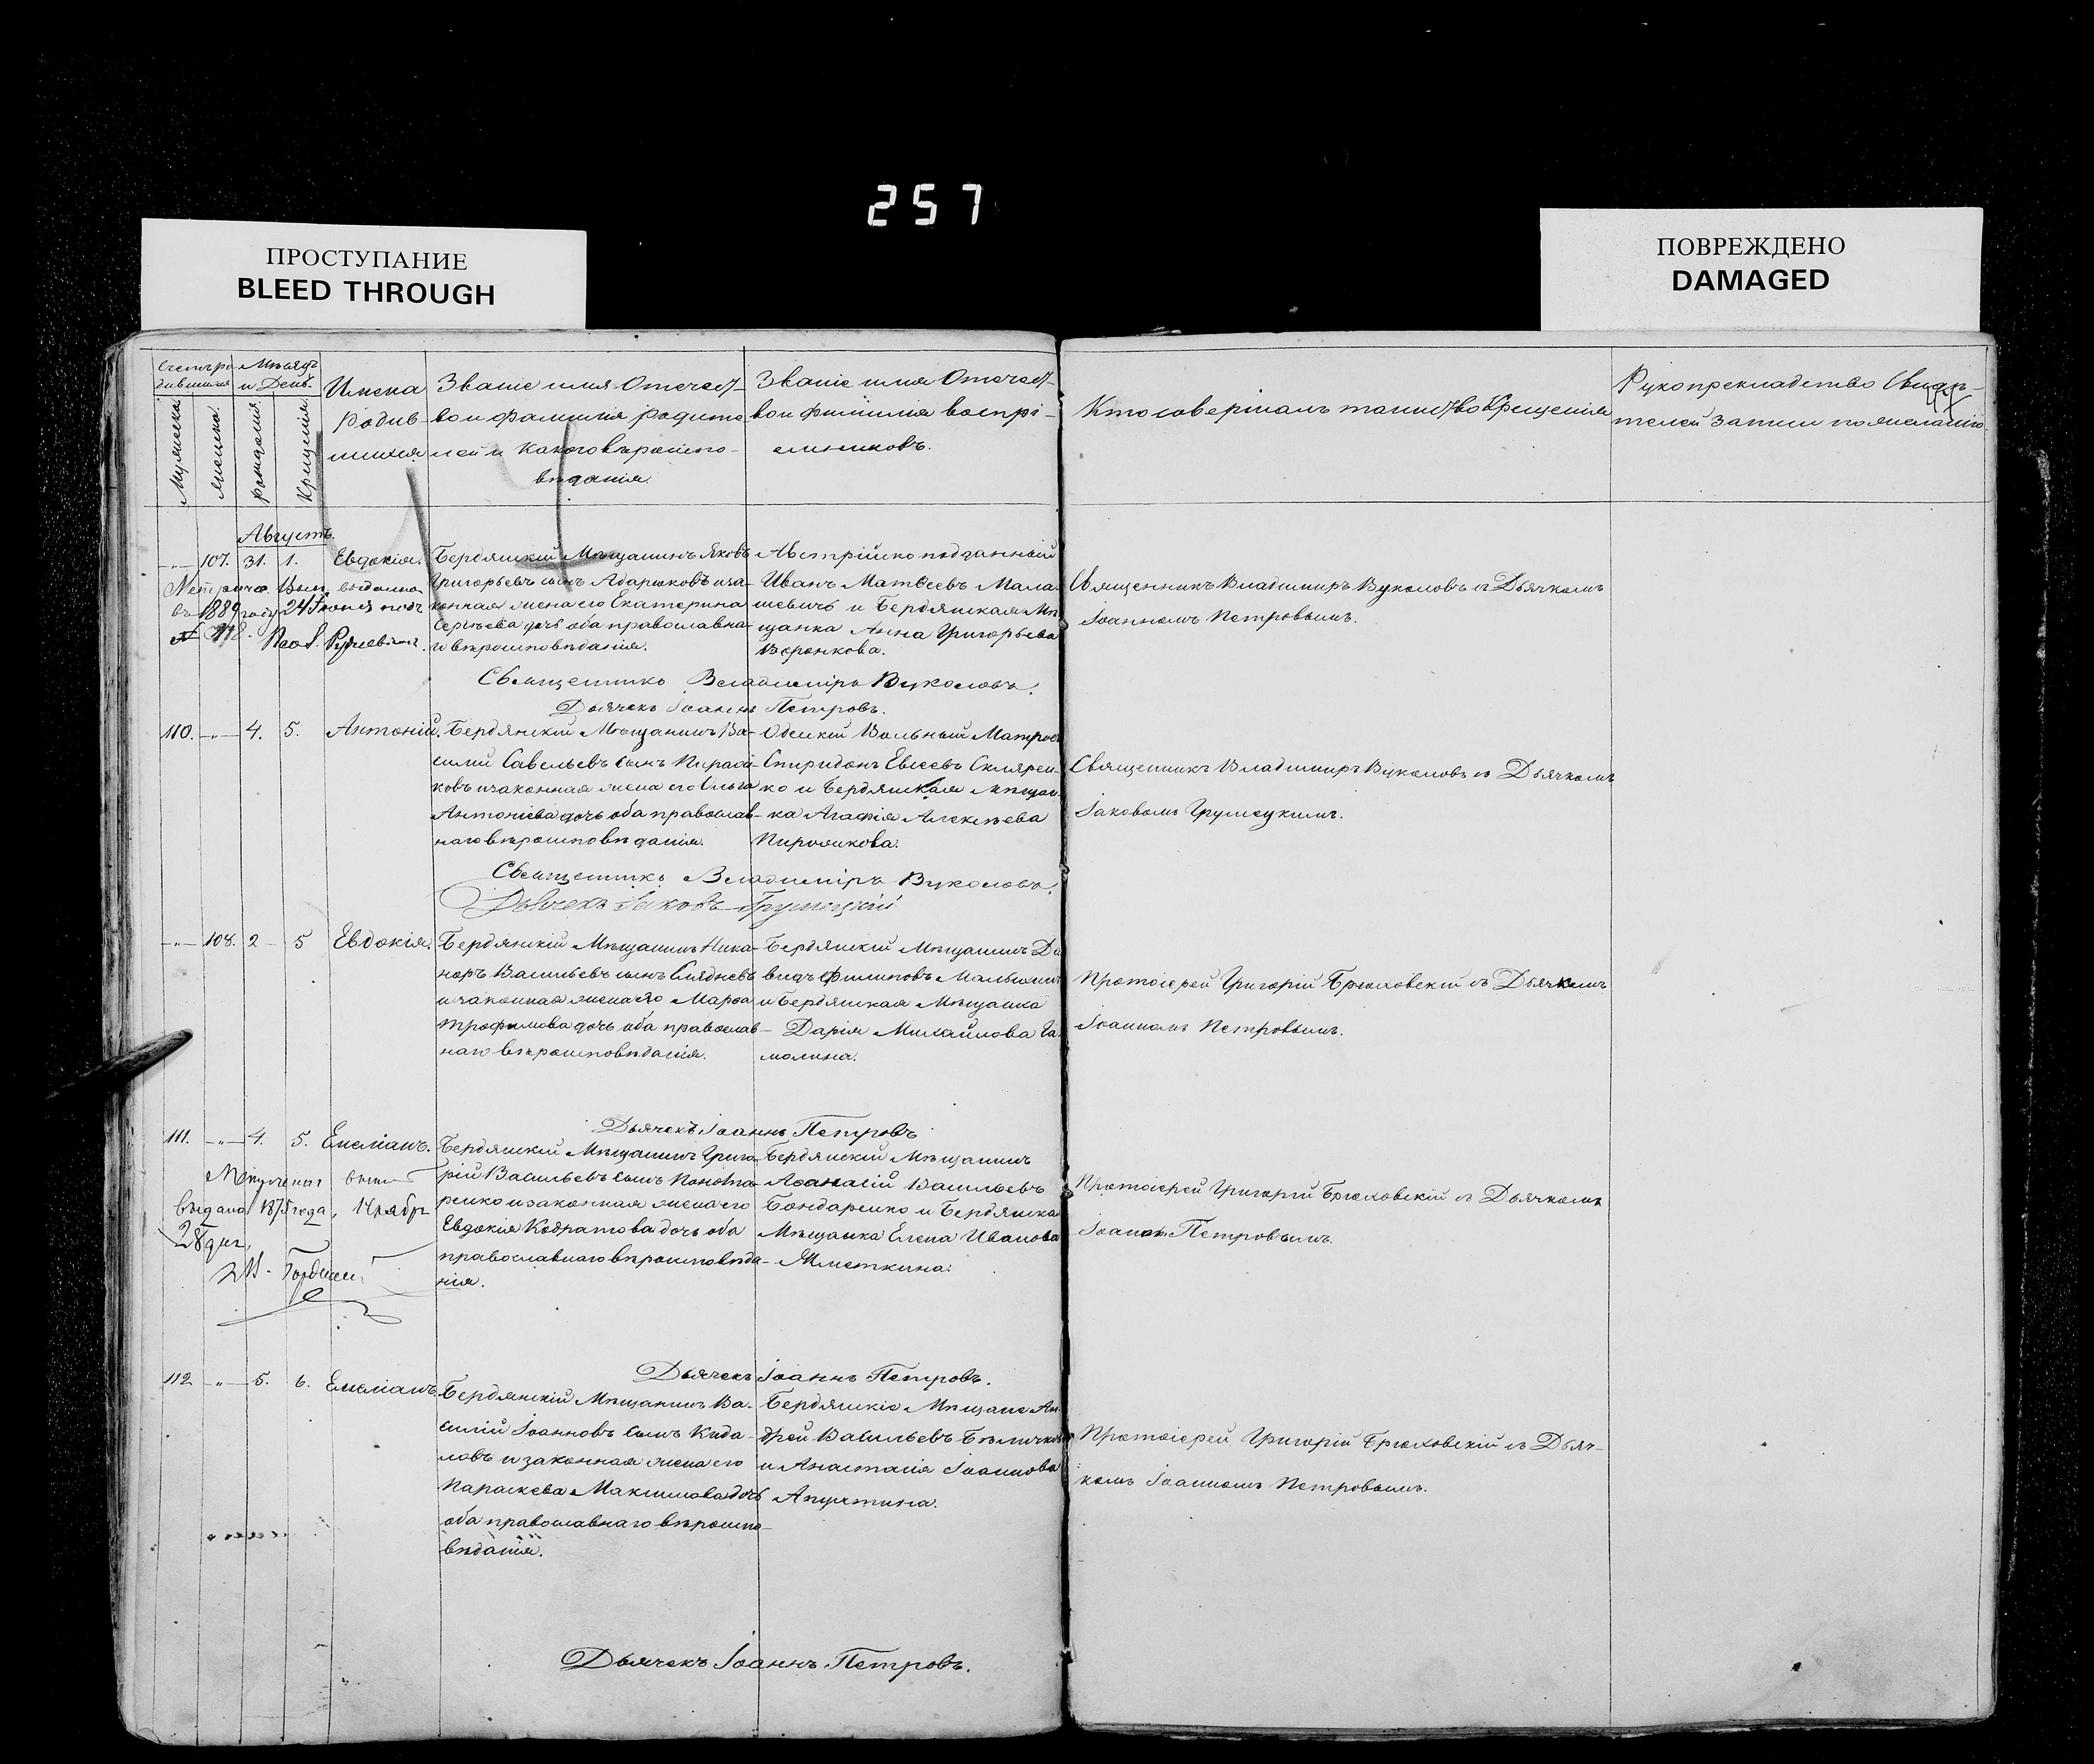 257
ПРОСТУПАНИЕ
BLEED THROUGH
ПОВРЕЖДЕНО
DAMAGED
Счетъ ро-
дившихся
Мужеска.
Женска.
Мѣсяцъ
и День.
Рожденія.
Крещенія.
Имена
Родив-
шихся
Званіе имя Отчест-
во и фамилія родите
лей и какого вѣроиспо-
вѣданія.
Званіе имя Отчест-
во и фамилія воспрі-
емниковъ.
Кто совершалъ таинство Крещенія
Рукоприкладство Свидѣ-
телей записи по желанію.
Августъ.
-"- 107. 31. 1. Евдокія.
Бердянскій Мѣщанинъ Яковъ
Григорьевъ сынъ Адарюковъ и за-
конная жена его Екатерина
Сергѣева дочь оба православна-
го вѣроисповѣданія.
Австрійско подданный
Иванъ Матвеевъ Мала-
шевичь и Бердянская Мѣ-
щанка Анна Григорьева
Воронкова.
Священникъ Владимиръ Вуколовъ съ Дьячкомъ
Іоанномъ Петровымъ.
Метричес. Вып. выдана
въ 1889 году 24 Іюня под
№ 318.
Священникъ Владиміръ Вуколовъ.
Дьячекъ Іоаннъ Петровъ.
110. -"- 4. 5. Антоній.
Бердянскій Мѣщанинъ Ва-
силій Савельевъ сынъ Пирож-
ковъ и законная жена его Ольга
Антоніева дочь оба православ-
наго вѣроисповѣданія.
Одескій Вольный Матросъ
Спиридонъ Евсеевъ Склярен-
ко и Бердянская Мѣщан-
ка Агафія Алексѣева
Пирожкова.
Священникъ Владимиръ Вуколовъ съ Дьячкомъ
Іаковомъ Грушецкимъ.
Священникъ Владиміръ Вуколовъ.
Дьячекъ Іаковъ Грушецкій
-"- 108. 2 - 5 Евдокія.
Бердянскій Мѣщанинъ Ника-
норъ Васильевъ сынъ Слядневъ
и законная жена его Марфа
Трофимова дочь оба православ-
наго вѣроисповѣданія.
Бердянскій Мѣщанинъ Да
видъ Филиповъ
и Бердянская Мѣщанка
Дарія Михайлова Га-
молина.
Протоіерей Григорій Брюховскій съ Дьячкомъ
Іоанномъ Петровымъ.
Дьячекъ Іоаннъ Петровъ
111. -"- 4. 5. Емеліанъ.
Бердянскій Мѣщанинъ Григо-
рій Васильевъ сынъ Кононо
ренко и законная жена его
Евдокія Кодратова дочь оба
православнаго вѣроисповѣда-
нія.
Бердянскій Мѣщанинъ
Афанасій Васильевъ
Бондаренко и Бердянска
Мѣщанка Елена Иванова
Протоіерей Григорій Брюховскій съ Дьячкомъ
Іоаномъ Петровымъ.
выдана 1875 года, 14
28 дня,
Дьячекъ Іоаннъ Петровъ.
112 -"- 5. 6. Емеліанъ.
Бердянскій Мѣщанинъ Ва-
силій Іоанновъ сынъ Кида-
ловъ и законная жена его
Параскева Максимова дочь
оба православнаго вѣроиспо-
вѣданія.
Бердянскіе Мѣщане Ан-
дрей Васильевъ Бѣличковъ
и Анастасія Іоаннова
Апухтина.
Протоіерей Григорій Брюховскій съ Дьяч-
комъ Іоанномъ Петровымъ.
Дьячекъ Іоаннъ Петровъ.